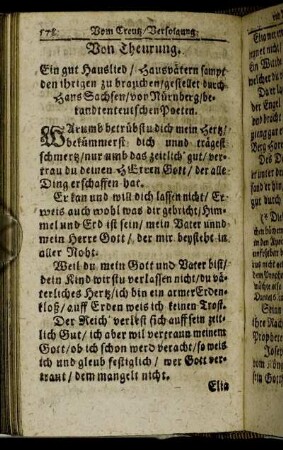 578. Vom Creutz/Verfolgung
Von Theurung.
Ein gut Hauslied/ Hausvätern sampt
den ihrigen zu brauchen/gestellet durch
Hans Sachsen/von Nürnberg/be-
kandten teutschen Poeten.
WArumb betrübstu dich mein Hertz/
bekümmerst dich unnd trägest
schmertz/nur umb das zeitlich gut/ver-
trau du deinen HErren Gott/ der alle
Ding erschaffen hat.
Er kan und will dich lassen nicht/ Er
weis auch wohl was dir gebricht/Him-
mel und Erd ist sein/ mein Vater unnd
mein Herre Gott/ der mir beysteht in
aller Noht.
Weil du mein Gott und Vater bist/
dein Kind wirstu verlassen nicht/du vä-
terliches Hertz/ich bin ein armer Erden-
kloß/auff Erden weis ich keinen Trost.
Der Reich verläst sich auff sein zeit-
lich Gut/ ich aber wil vertraun meinem
Gott/ob ich schon werd veracht/so weis
ich und gleub festiglich/ wer Gott ver-
traut/ dem mangelt nicht.
Elia